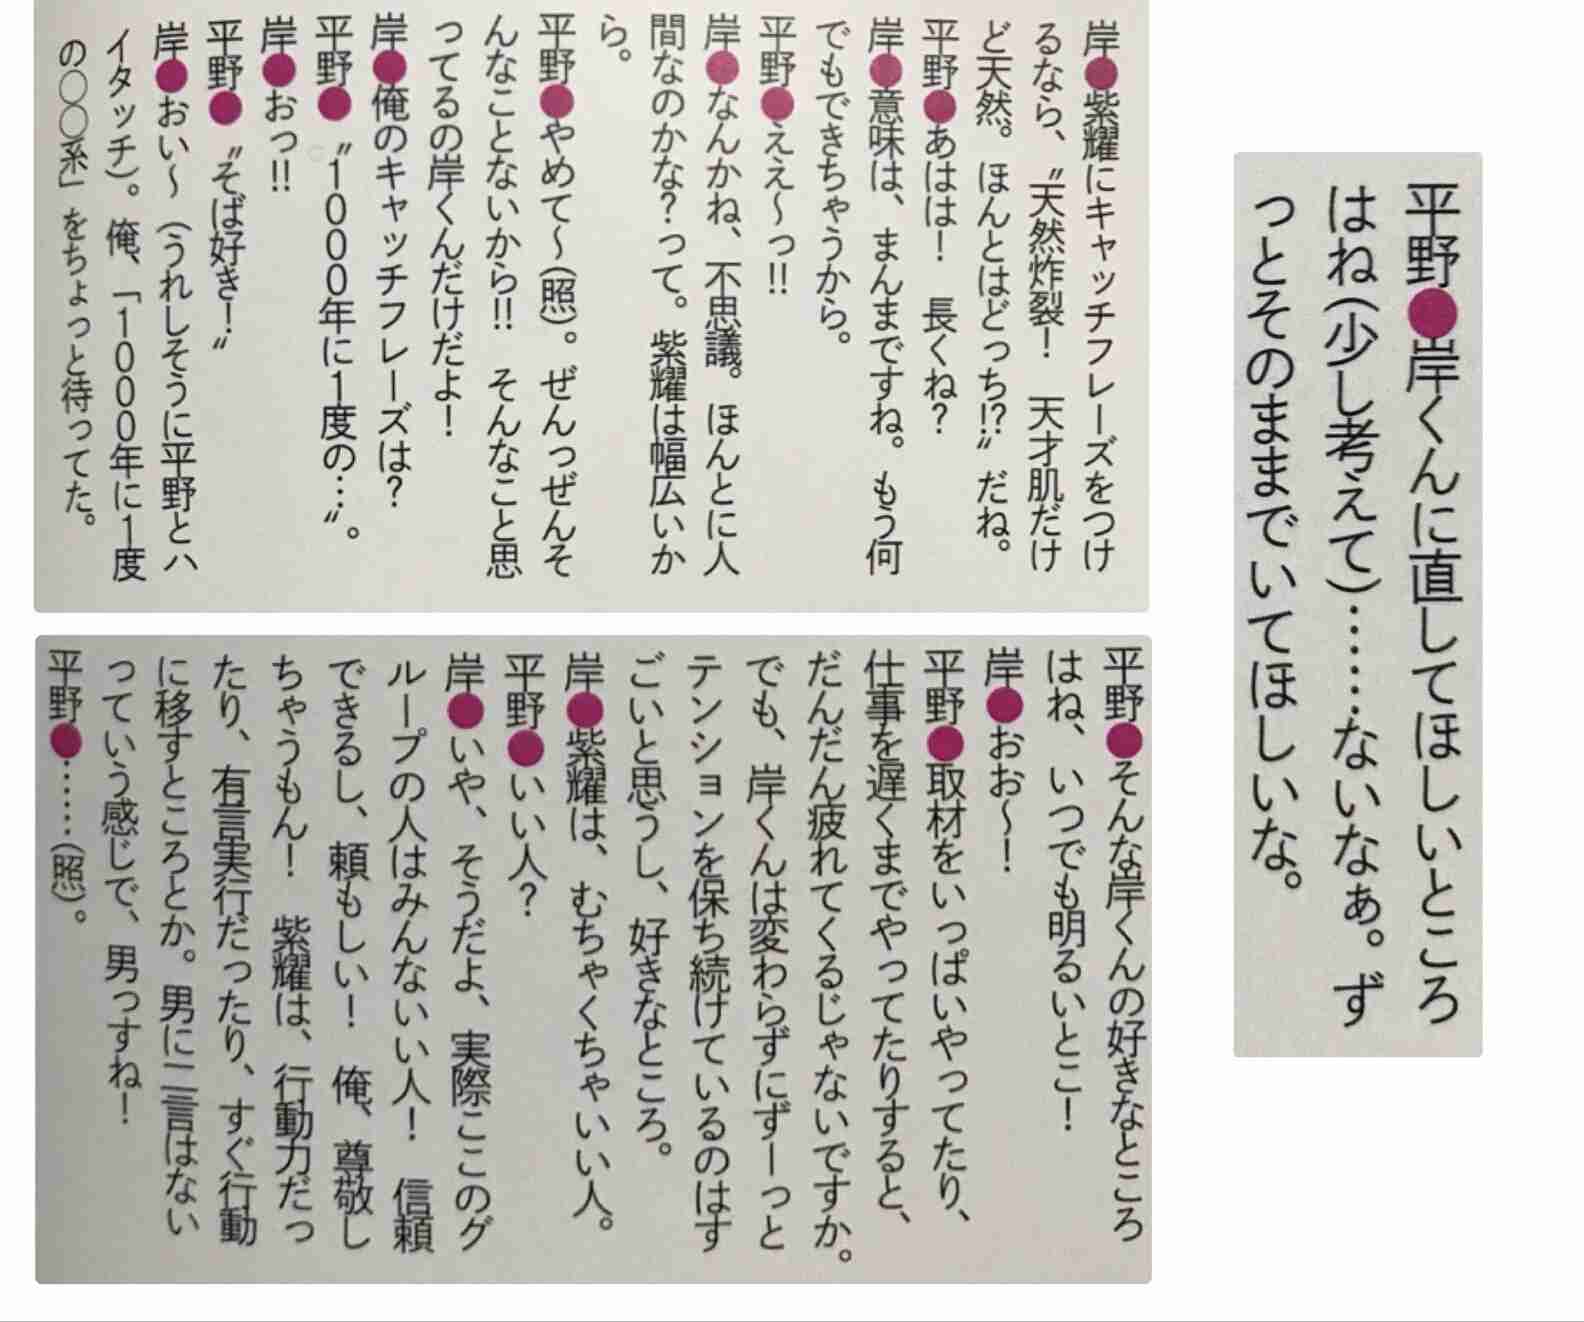 平野●岸くんに直してほしいところ
はね(少し考えて)……ないなぁ。ず
っとそのままでいてほしいな。
岸●紫耀にキャッチフレーズをつけ
るなら、〝天然炸裂！ 天才肌だけ
ど天然。ほんとはどっち!?〟だね。
平野●あはは！ 長くね？
岸●意味は、まんまですね。もう何
でもできちゃうから。
平野●ええ〜っ!!
岸●なんかね、不思議。ほんとに人
間なのかな？って。紫耀は幅広いか
ら。
平野●やめて〜(照)。ぜんっぜんそ
んなことないから!! そんなこと思
ってるの岸くんだけだよ！
岸●俺のキャッチフレーズは？
平野●〝1000年に1度の…〟。
岸●おっ!!
平野●〝そば好き！〟
岸●おい〜(うれしそうに平野とハ
イタッチ)。俺、「1000年に1度
の○○系」をちょっと待ってた。
平野●そんな岸くんの好きなところ
はね、いつでも明るいとこ！
岸●おお〜！
平野●取材をいっぱいやってたり、
仕事を遅くまでやってたりすると、
だんだん疲れてくるじゃないですか。
でも、岸くんは変わらずにずーっと
テンションを保ち続けているのはす
ごいと思うし、好きなところ。
岸●紫耀は、むちゃくちゃいい人。
平野●いい人？
岸●いや、そうだよ、実際ここのグ
ループの人はみんないい人！ 信頼
できるし、頼もしい！ 俺、尊敬し
ちゃうもん！ 紫耀は、行動力だっ
たり、有言実行だったり、すぐ行動
に移すところとか。男に二言はない
っていう感じで、男っすね！
平野●……(照)。